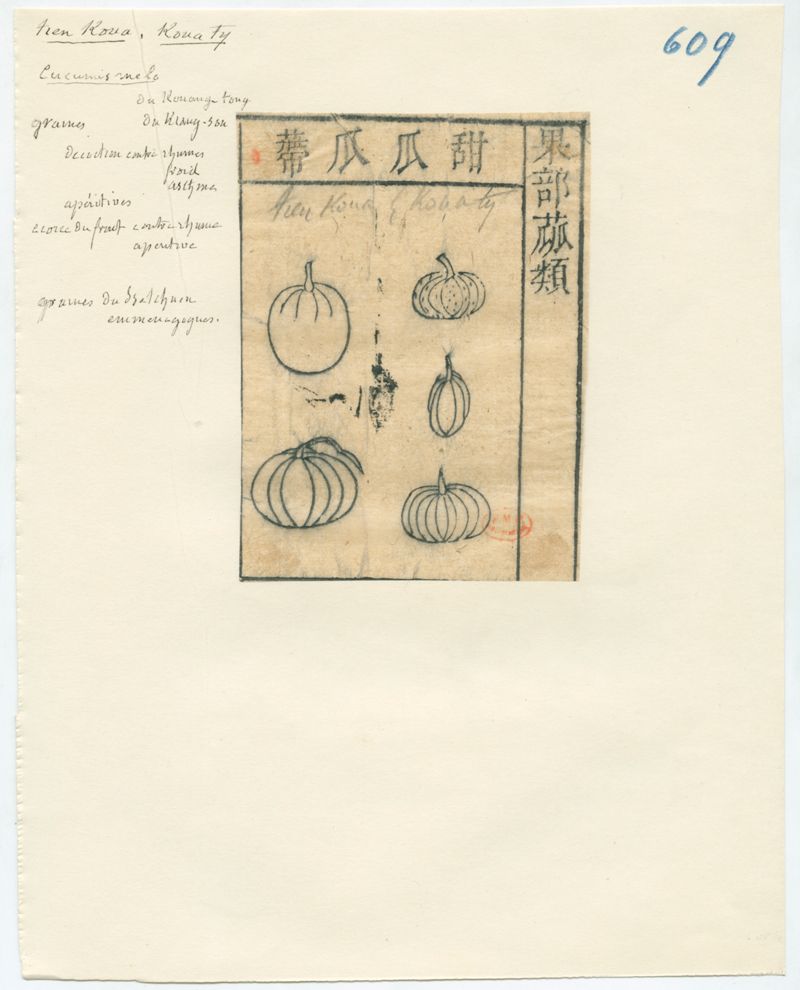 tien Koua, Koua ty
609
Cucumis melo
du Kouang-tong
graines du Kiang-sou
decoction contre rhumes
froid
asthme
apéritives
ecorce du fruit contre rhume
aperitive
graines du Szetchuen
emmenagogues.
甜瓜瓜蔕
果部蓏類
tien Koua & Koua ty